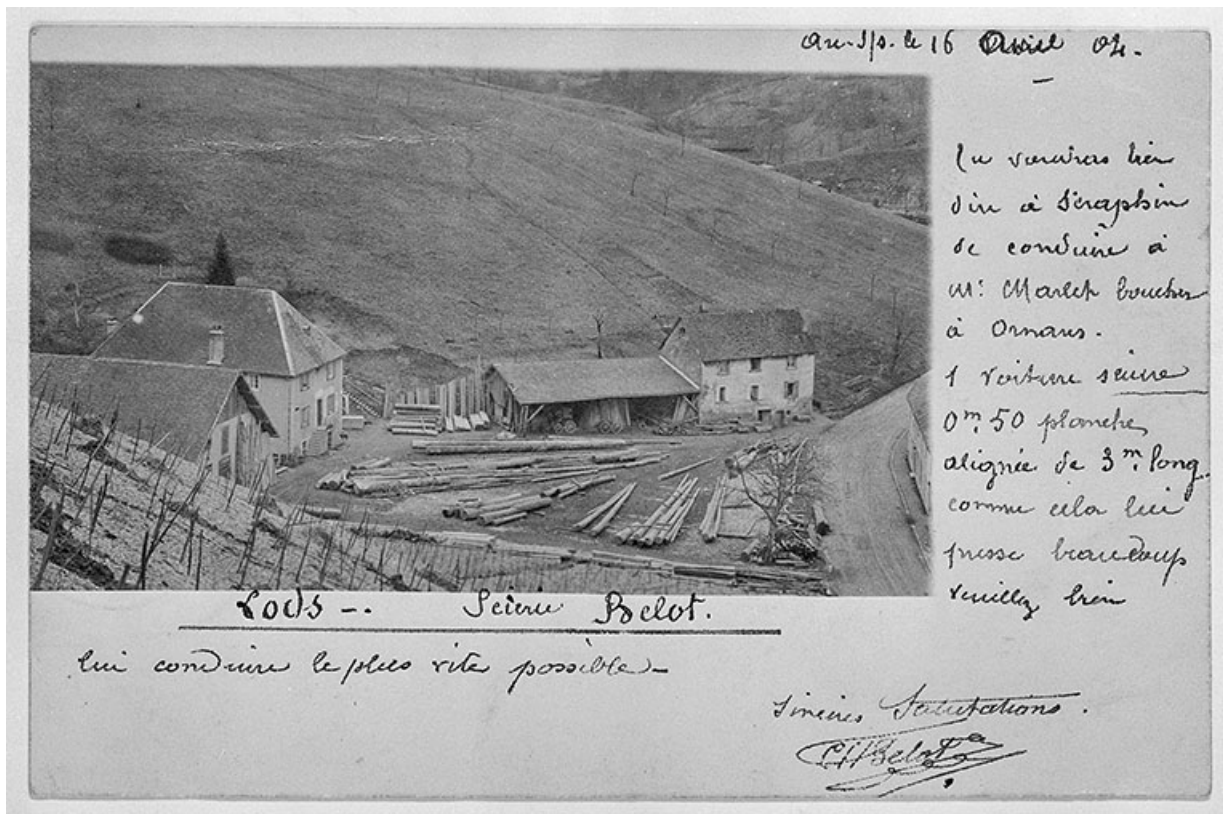 le 16 Avril 04.
Tu voudras bien
dire à Séraphin
de conduire à
Mr. Marlet boucher
à Ornans.
1 voiture sciure
0m,50 planches
alignée de 3m, long
comme cela lui
presse beaucoup
veuillez bien
Lods -. Scierie Belot.
lui conduire le plus vite possible -
Sincères Salutations.
Belot